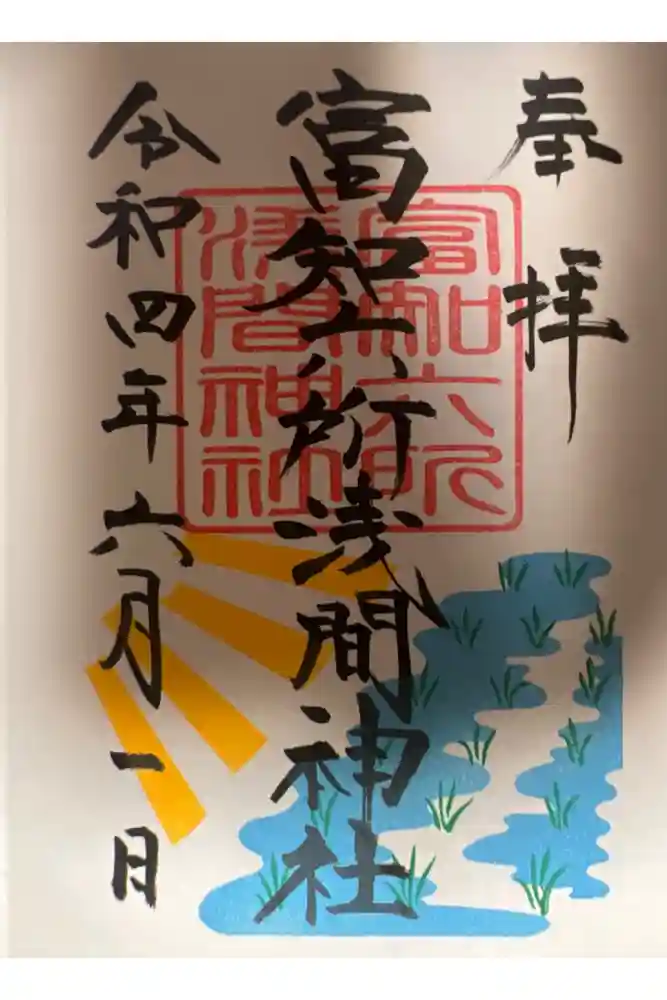 奉拝
富知六所浅間神社
富知六所浅間神社
令和四年六月一日